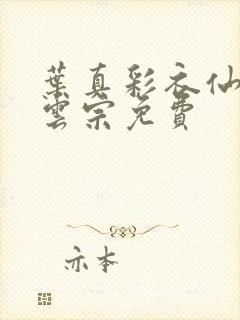 葉真彩衣仙
雲宗免費
亦本